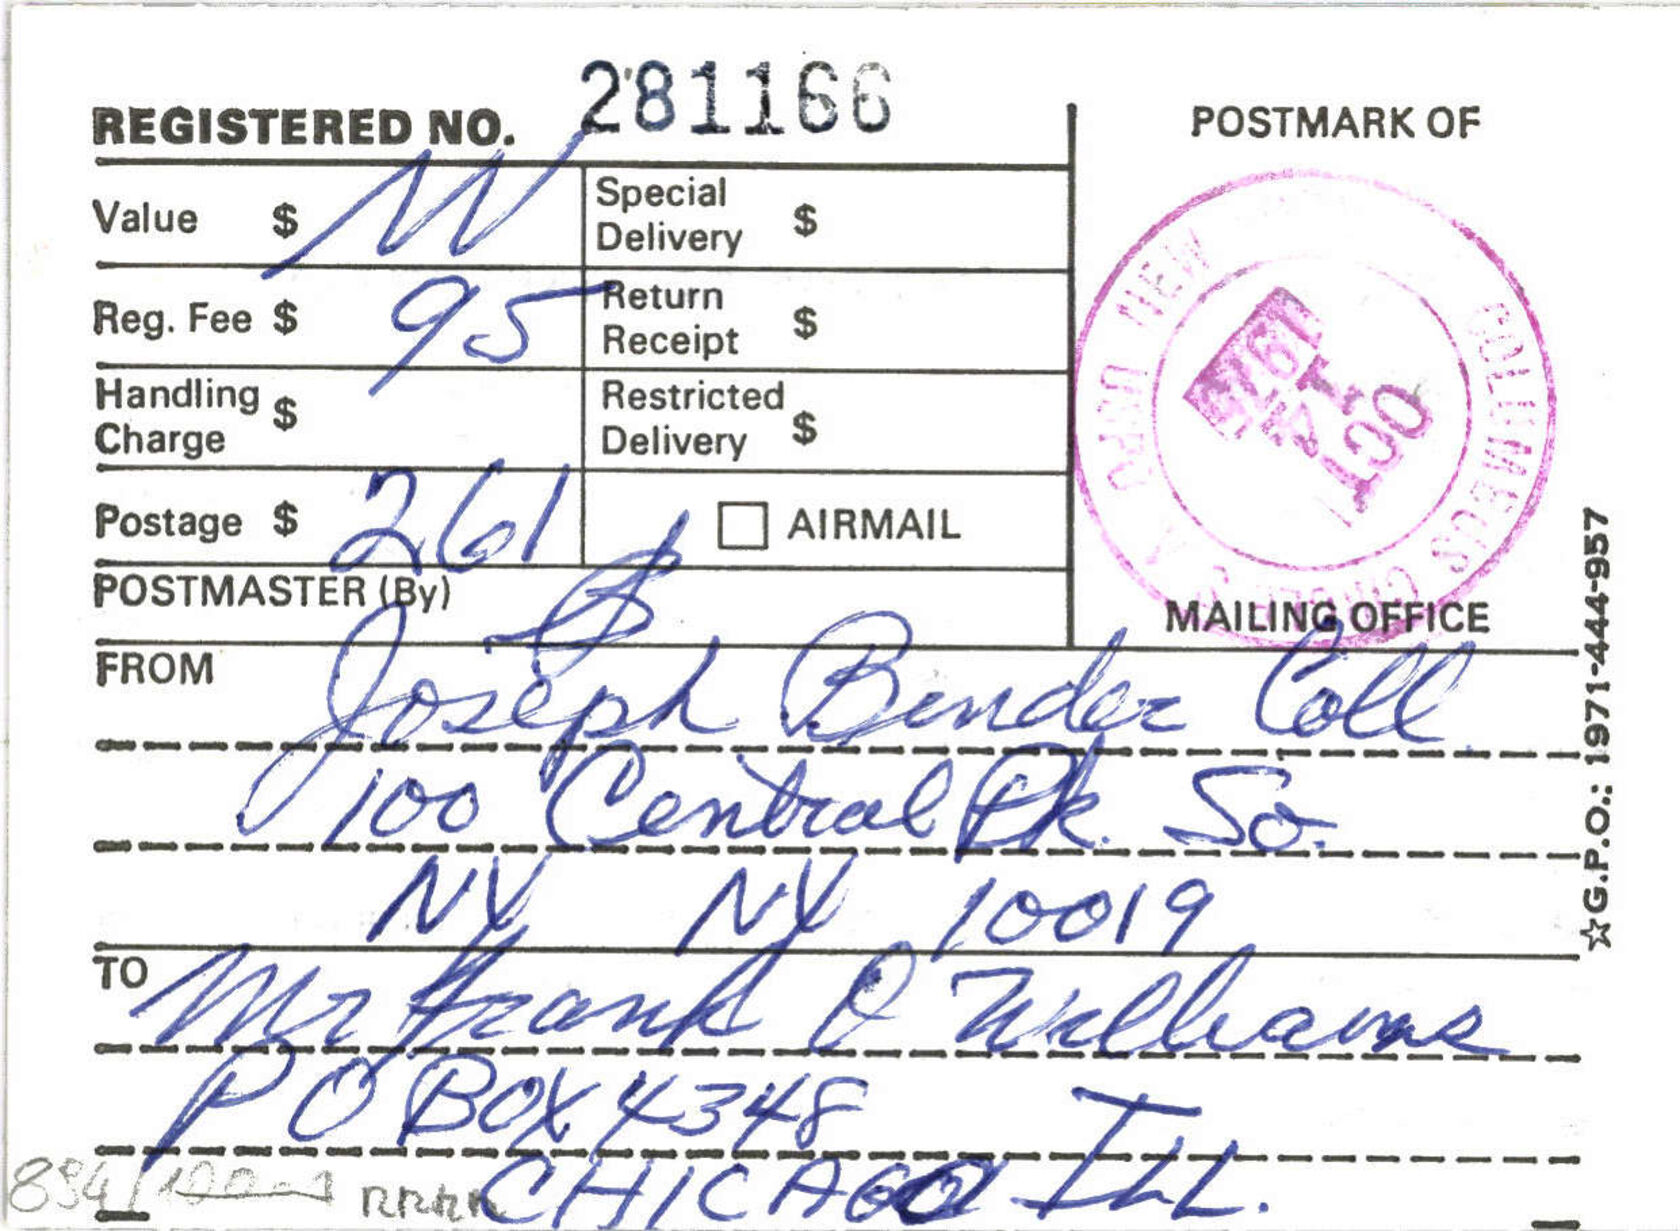 REGISTERED NO. 281166
POSTMARK OF
Value $ NV
Special Delivery $
Reg. Fee $ 95
Return Receipt $
Handling Charge $
Restricted Delivery $
Postage $ 261
AIRMAIL
POSTMASTER (By)
MAILING OFFICE
COLUMBUS CIRCLE
NEW YORK
OCT
1
1973
☆G.P.O.: 1971-444-957
FROM
Joseph Binder Coll.
100 Central Pk. So.
NY NY 10019
TO
Mr Frank O Williams
PO BOX 4348
CHICAGO ILL.